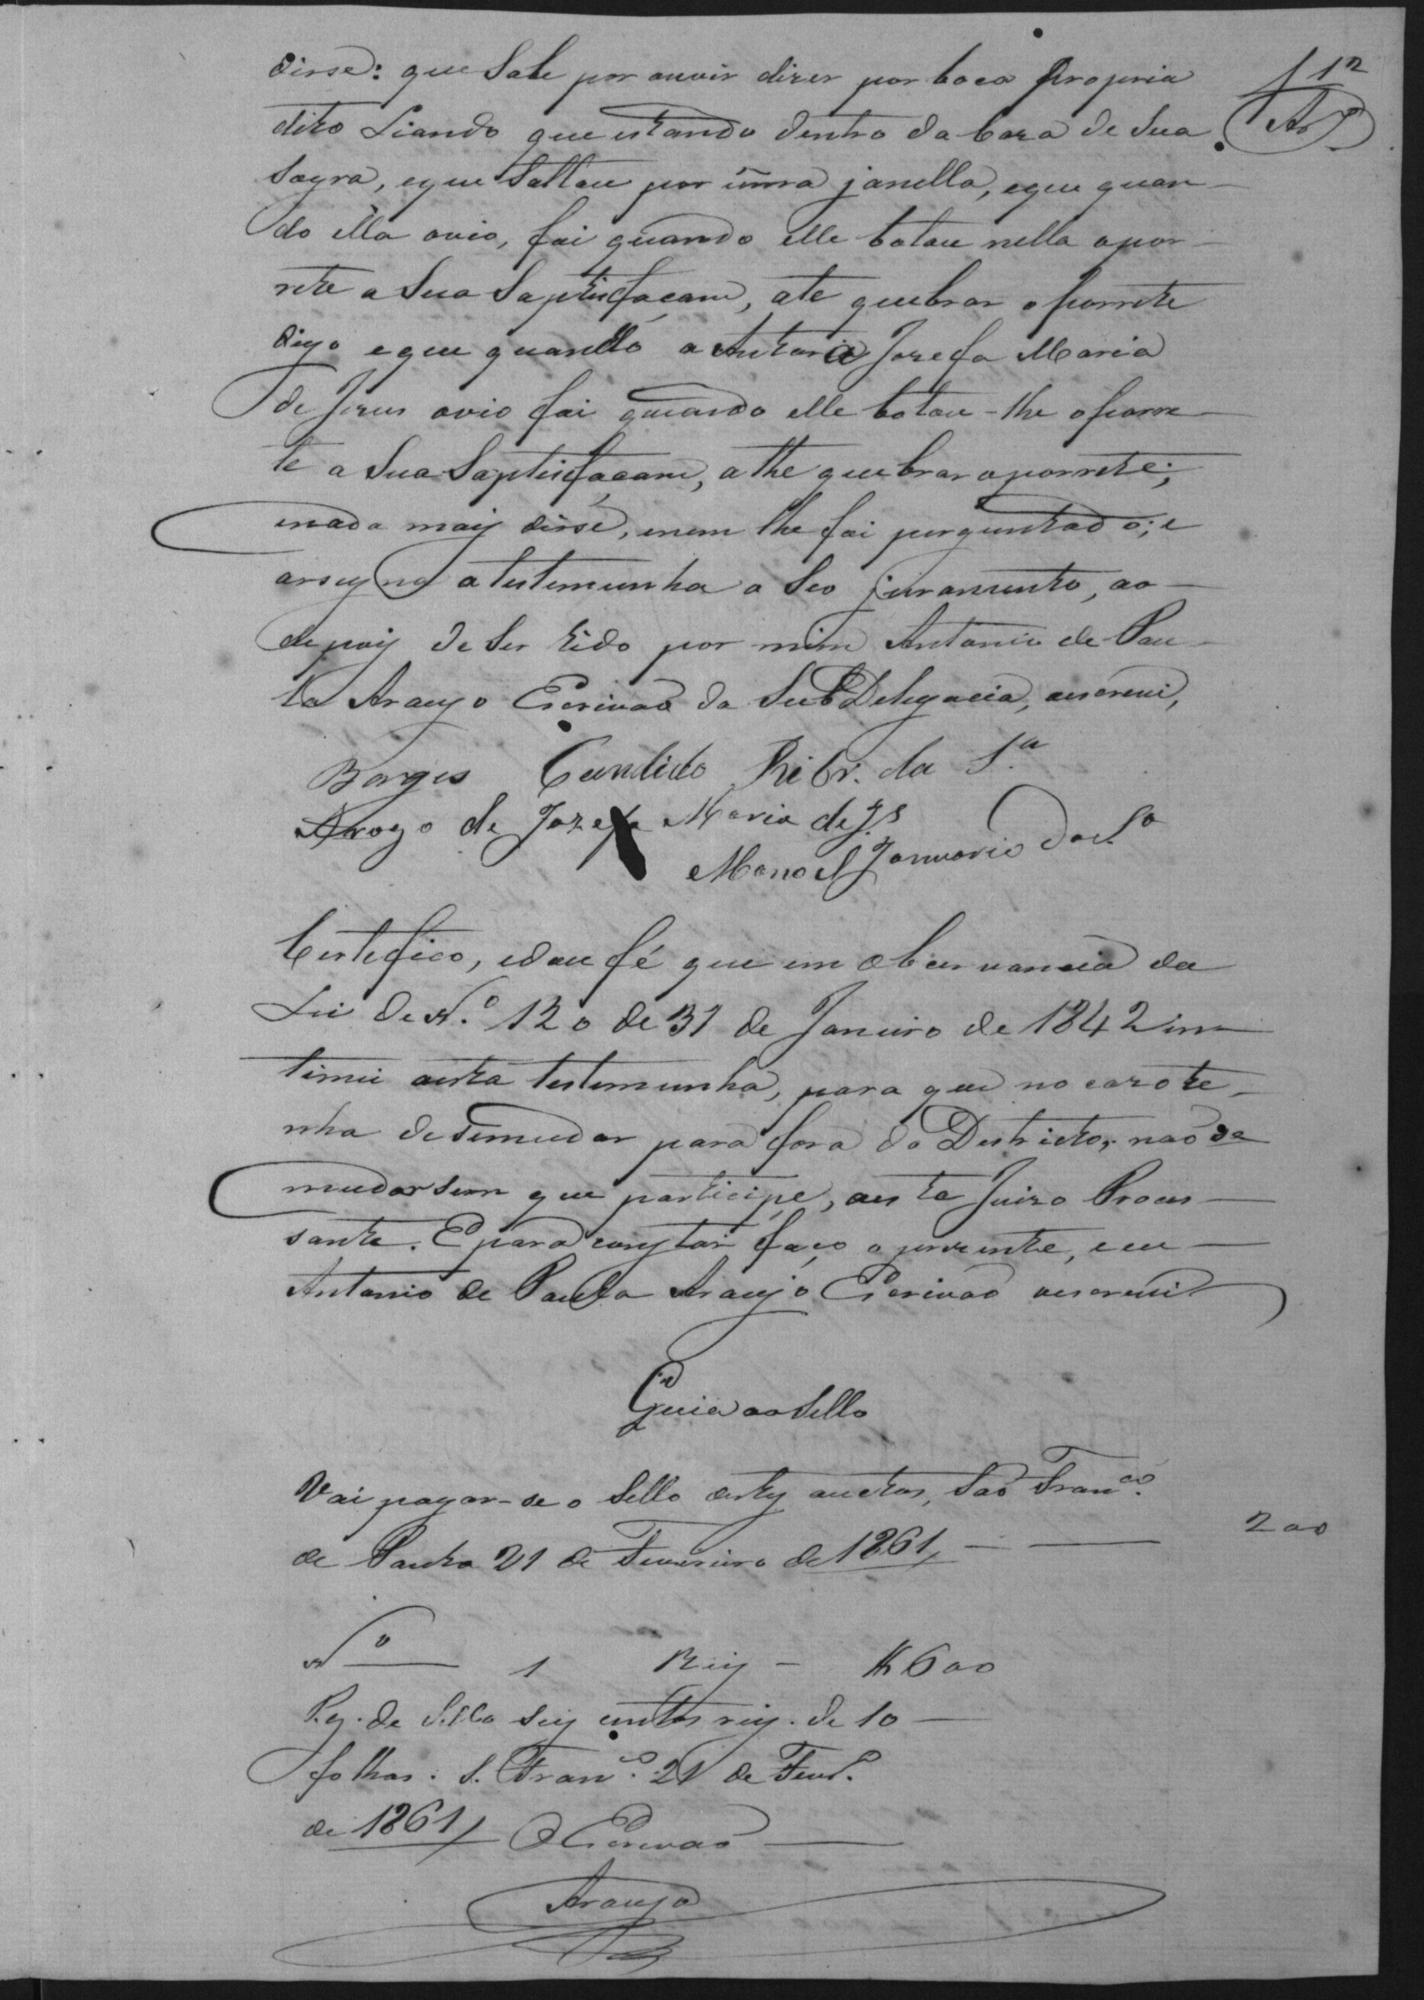 12
Ar.º
disse: que Sabe por ouvir dizer por boca propria
dito Liando que estando dentro da Caza de Sua
Sogra, eque Saltou por uma janella, eque quan-
do ella ovio, foi quando elle botou nella opor-
rete a Sua Saptisfaçam, ate quebrar oporrete
digo eque quando a Autora Jozefa Maria
de Jezus ovio foi quando elle botou-lhe oporre-
te a Sua Saptisfaçam, athe quebrar oporrete;
enada maiz disse, enem lhe foi perguntado; e
assigna atestemunha o Seo juramento, ao
depoiz de Ser lido por mim Antonio de Pau-
la Araujo Escrivaõ da SubDelegacia, aescrevi,
Borges Candido Ribr. da S.ª
Arogo de Jozefa Maria de Js
Manoel Januario da S.ª
Certefico, edou fé que em observancia da
Lei de N.º 120 de 31 de Janeiro de 1842 in-
timei aesta testemunha, para que no cazo te-
nha desemudar para fora do Destricto, naõ se
mudar sem que participe, aeste Juizo Proces-
sante. E para constar faço o prezente, eeu
Antonio de Paula Araujo Escrivaõ aescrevi
Guia ao Sello
Vai pagar-se o Sello destes auctos, Saõ Franco.
de Paula 21 de Fevereiro de 1861 200
Nº 1 Reiz - 600
Pg. de Sello seiz centos reiz. de 10
folhas. S. Franco. 21 de Fevr.º
de 1861 O Escrivaõ
Araujo